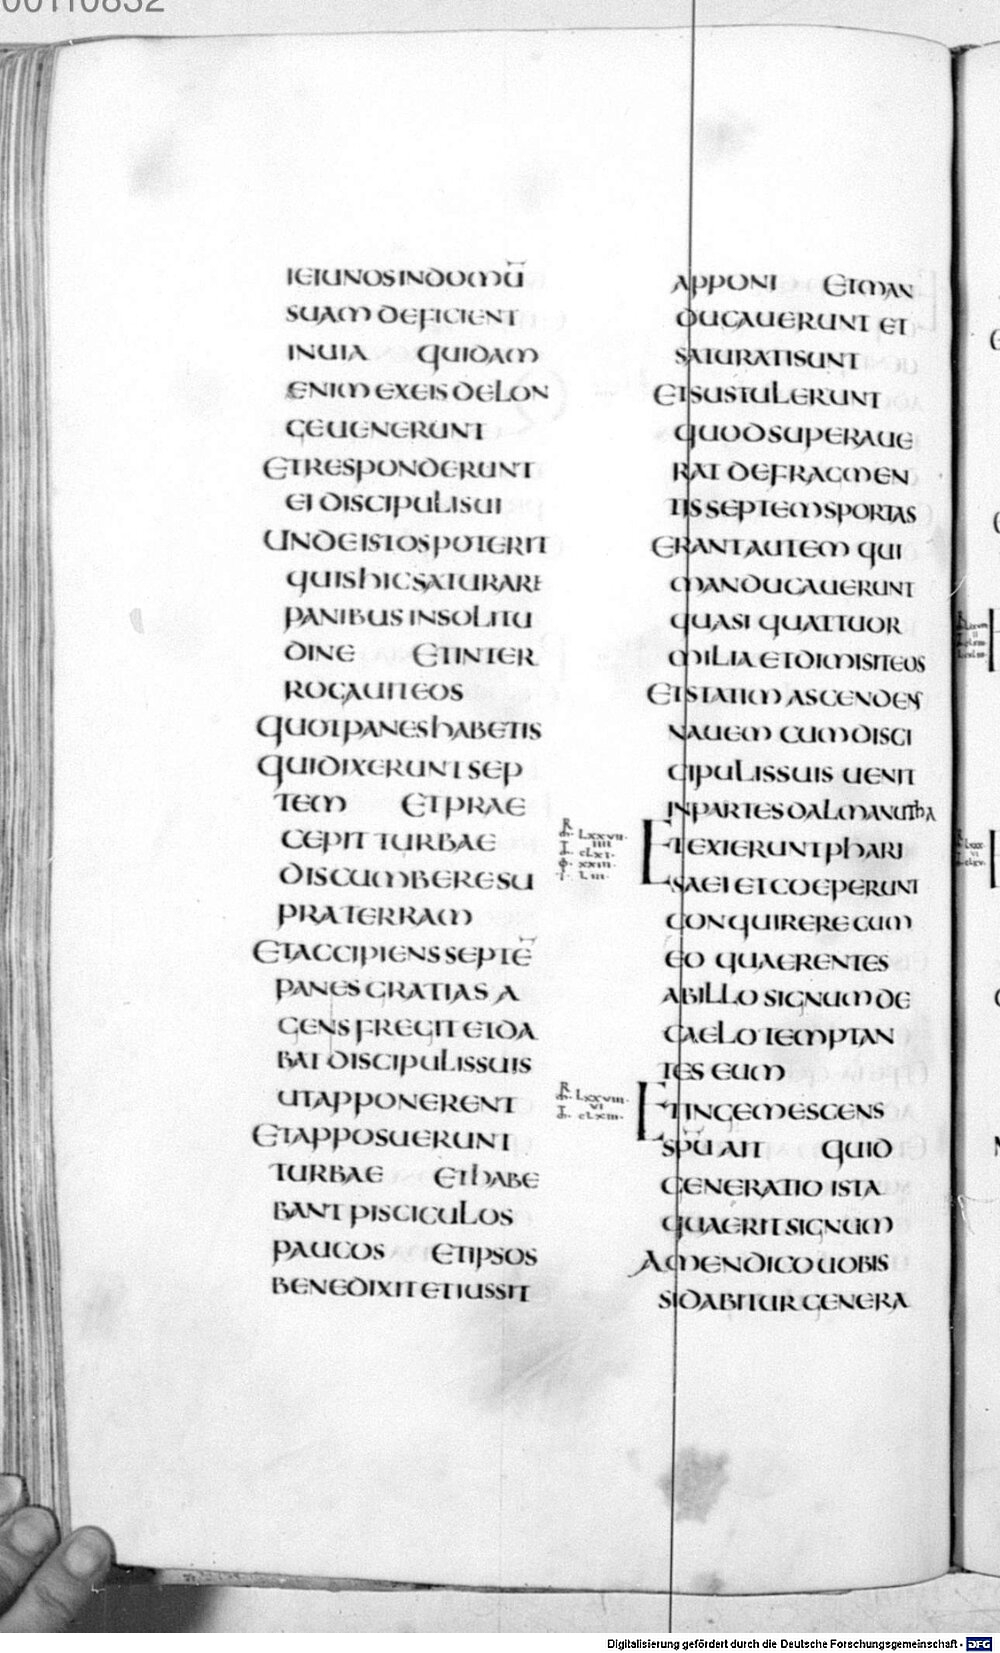 00110832
IEIUNOSINDOMŪ
SUAM DEFICIENT
INUIA QUIDAM
ENIM EXEIS DELON
GEUENERUNT
ETRESPONDERUNT
EI DISCIPULISUI
UNDEISTOSPOTERIT
QUISHICSATURARE
PANIBUS INSOLITU
DINE ETINTER
ROGAUITEOS
QUOTPANESHABETIS
QUIDIXERUNTSEP
TEM ETPRAE
CEPIT TURBAE
DISCUMBERESU
PRATERRAM
ETACCIPIENSSEPTĒ
PANESGRATIAS A
GENSFREGITETDA
BATDISCIPULISSUIS
UTAPPONERENT
ETAPPOSUERUNT
TURBAE ETHABE
BANTPISCICULOS
PAUCOS ETIPSOS
BENEDIXITETIUSSIT
APPONI ETMAN
DUCAUERUNT ET
SATURATISUNT
ETSUSTULERUNT
QUODSUPERAUE
RAT DEFRAGMEN
TISSEPTEMSPORTAS
ERANTAUTEM QUI
MANDUCAUERUNT
QUASI QUATTUOR
MILIAETDIMISITEOS
ETSTATIM ASCENDENS
NAUEM CUMDISCI
CIPULISSUIS UENIT
INPARTESDALMANUTHA
R
M. LXXVII.
IIII
I. CLXI.
LIII.
ETEXIERUNTPHARI
SAEIETCOEPERUNT
CONQUIRERECUM
EO QUAERENTES
ABILLO SIGNUMDE
CAELOTEMPTAN
TES EUM
R
M. LXXVIII.
VI
I. CLXIII.
ETINGEMESCENS
SPŪ AIT QUID
GENERATIO ISTA
QUAERITSIGNUM
AMENDICOUOBIS
SIDABITURGENERA
Digitalisierung gefördert durch die Deutsche Forschungsgemeinschaft - DFG